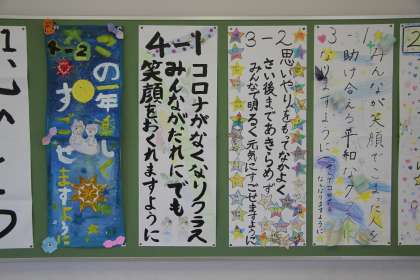 4-2
この一年楽しく
すごせますように
4-1
コロナがなくなりクラス
みんながだれにでも
笑顔をおくれますように
3-2
思いやりをもってなかよく
さい後まであきらめず
みんなで明るく元気にすごせますように
3-1
みんなが笑顔でこまった人を
助け合える平和なクラスに
なりますように
2